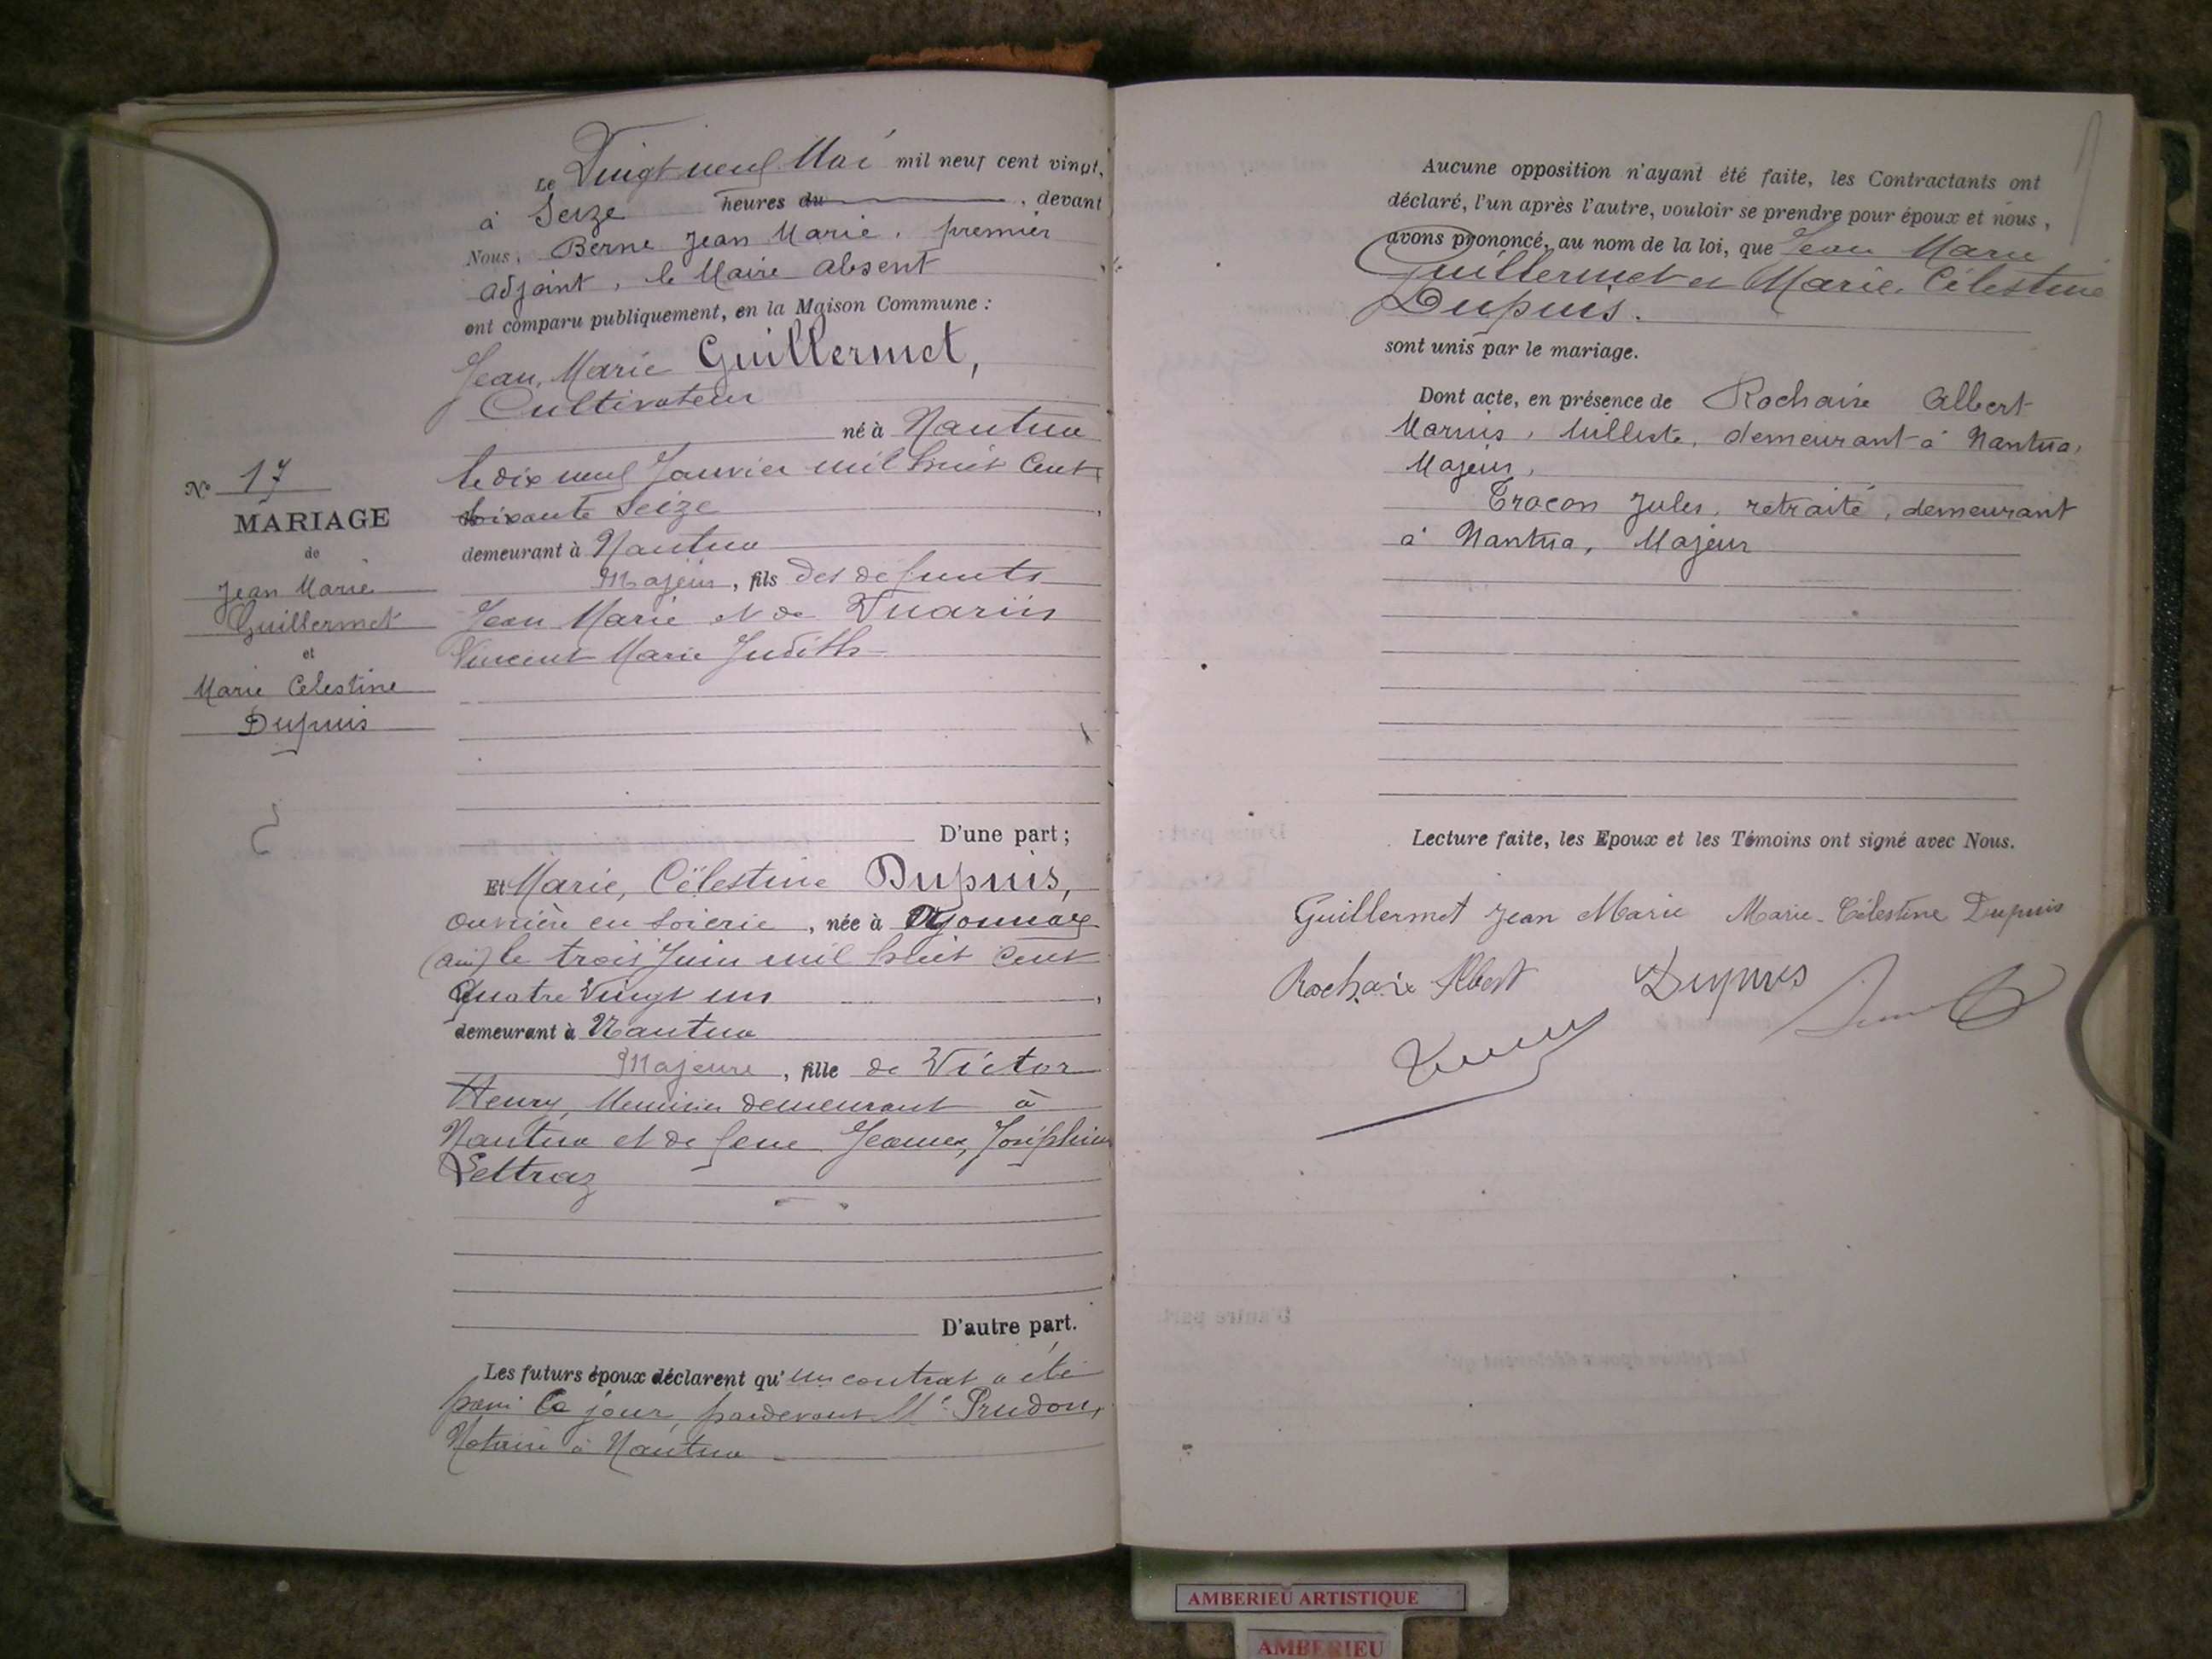 Le Vingt neuf Mai mil neuf cent vingt,
à Seize heures du , devant
Nous, Berne Jean Marie, premier
adjoint, le Maire absent
ont comparu publiquement, en la Maison Commune :
Jean, Marie Guillermet,
Cultivateur
né à Nantua
le dix neuf Janvier mil huit cent
soixante seize
demeurant à Nantua
Majeur, fils des defunts
Jean Marie et de
Vincent Marie Judith
N° 17
MARIAGE
de
Jean Marie
Guillermet
et
Marie Celestine
Dupuis
D'une part;
Et Marie, Célestine Dupuis,
ouvrière en soierie, née à Oyonnax
(ain) le trois Juin mil huit cent
Quatre Vingt un
demeurant à Nantua
Majeure, fille de Victor
Henry, Menuisier demeurant à
Nantua et de feue Jeanne, Joséphine
D'autre part.
Les futurs époux déclarent qu'un contrat a été
ce jour, pardevant Me Prudon,
Notaire à Nantua
Aucune opposition n'ayant été faite, les Contractants ont
déclaré, l'un après l'autre, vouloir se prendre pour époux et nous,
avons prononcé, au nom de la loi, que Jean Marie
Guillermet et Marie, Célestine
Dupuis.
sont unis par le mariage.
Dont acte, en présence de Rochaix Albert
Marius, demeurant à Nantua,
Majeur,
Tracon Jules, retraité, demeurant
à Nantua, Majeur
Lecture faite, les Epoux et les Témoins ont signé avec Nous.
Guillermet Jean Marie Marie-Célestine Dupuis
Rochaix Albert Dupuis
AMBERIEU ARTISTIQUE
AMBERIEU